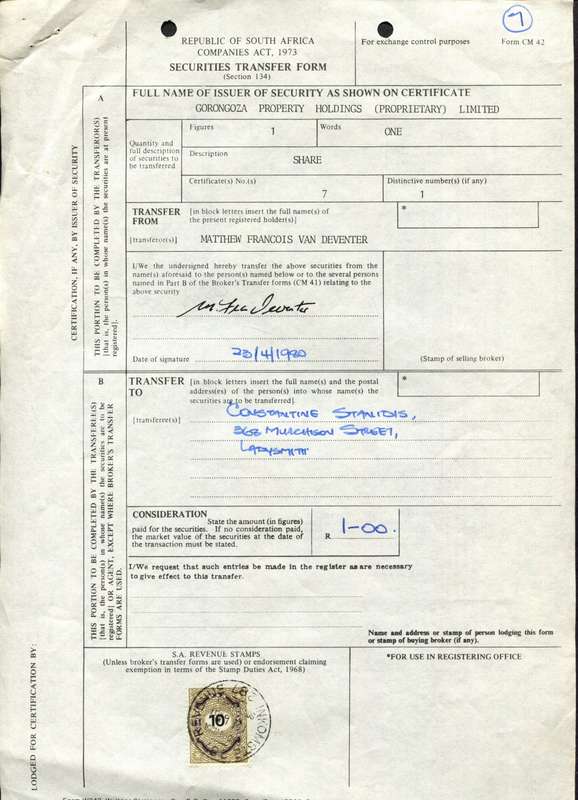 7
REPUBLIC OF SOUTH AFRICA
COMPANIES ACT, 1973
SECURITIES TRANSFER FORM
(Section 134)
For exchange control purposes
Form CM 42
A
FULL NAME OF ISSUER OF SECURITY AS SHOWN ON CERTIFICATE
GORONGOZA PROPERTY HOLDINGS (PROPRIETARY) LIMITED
Quantity and full description of securities to be transferred
Figures 1 Words ONE
Description SHARE
Certificate(s) No.(s) 7
Distinctive number(s) (if any) 1
CERTIFICATION, IF ANY, BY ISSUER OF SECURITY
THIS PORTION TO BE COMPLETED BY THE TRANSFEROR(S)
[that is, the person(s) in whose name(s) the securities are at present
registered]
TRANSFER FROM
[transferor(s)]
[in block letters insert the full name(s) of
the present registered holder(s)]
*
MATTHEW FRANCOIS VAN DEVENTER
I/We the undersigned hereby transfer the above securities from the
name(s) aforesaid to the person(s) named below or to the several persons
named in Part B of the Broker's Transfer forms (CM 41) relating to the
above security
Date of signature 23/4/1980
(Stamp of selling broker)
B
TRANSFER TO
[transferee(s)]
[in block letters insert the full name(s) and the postal
address(es) of the person(s) into whose name(s) the
securities are to be transferred]
*
CONSTANTINE STANIDIS,
368 MURCHISON STREET,
LADYSMITH
THIS PORTION TO BE COMPLETED BY THE TRANSFEREE(S)
[that is, the person(s) in whose name(s) the securities are to be
registered] OR AGENT, EXCEPT WHERE BROKER'S TRANSFER
FORMS ARE USED.
CONSIDERATION
State the amount (in figures)
paid for the securities. If no consideration paid,
the market value of the securities at the date of
the transaction must be stated.
R 1-00.
I/We request that such entries be made in the register as are necessary
to give effect to this transfer.
Name and address or stamp of person lodging this form
or stamp of buying broker (if any).
LODGED FOR CERTIFICATION BY:
S.A. REVENUE STAMPS
(Unless broker's transfer forms are used) or endorsement claiming
exemption in terms of the Stamp Duties Act, 1968)
*FOR USE IN REGISTERING OFFICE
10c